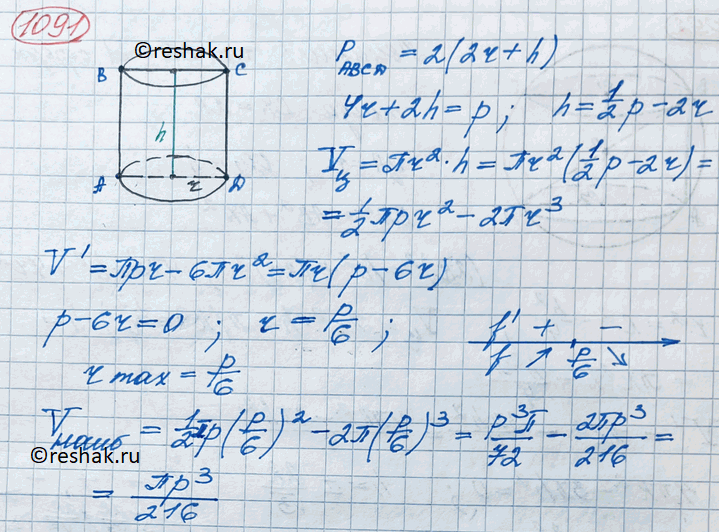 1091
©reshak.ru
B C
h
A r D
P_ABCD = 2(2r+h)
4r+2h=p; h=½p-2r
V_ц = πr²·h = πr²(½p-2r) =
= ½πpr² - 2πr³
V' = πpr - 6πr² = πr(p-6r)
p-6r=0; r = p/6;
f' + -
f ↗ p/6 ↘
r max = p/6
V_наиб = ½πp(p/6)² - 2π(p/6)³ = p³π/72 - 2πp³/216 =
©reshak.ru
= πp³/216